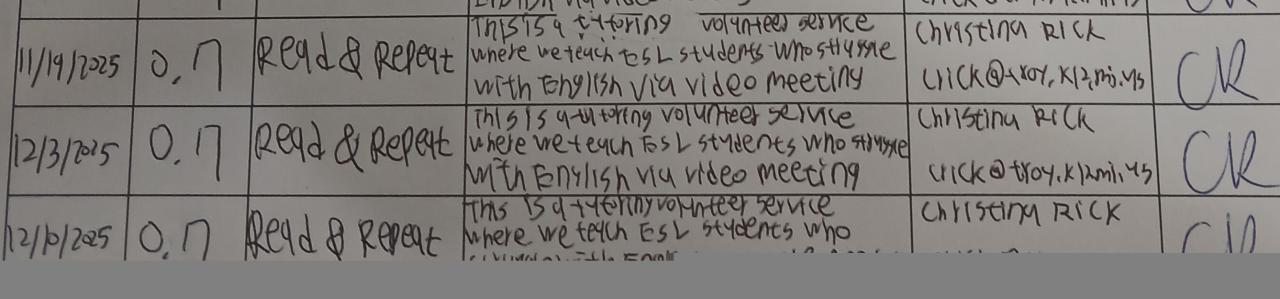 11/19/2025 0.7 Read & Repeat
This is a tutoring volunteer service
where we teach ESL students who struggle
with English via video meeting
Christina Rick
crick@troy.k12.mi.us
CR
12/3/2025 0.7 Read & Repeat
This is a tutoring volunteer service
where we teach ESL students who struggle
with English via video meeting
Christina Rick
crick@troy.k12mi.us
CR
12/10/2025 0.7 Read & Repeat
This is a tutoring volunteer service
where we teach ESL students who
Christina Rick